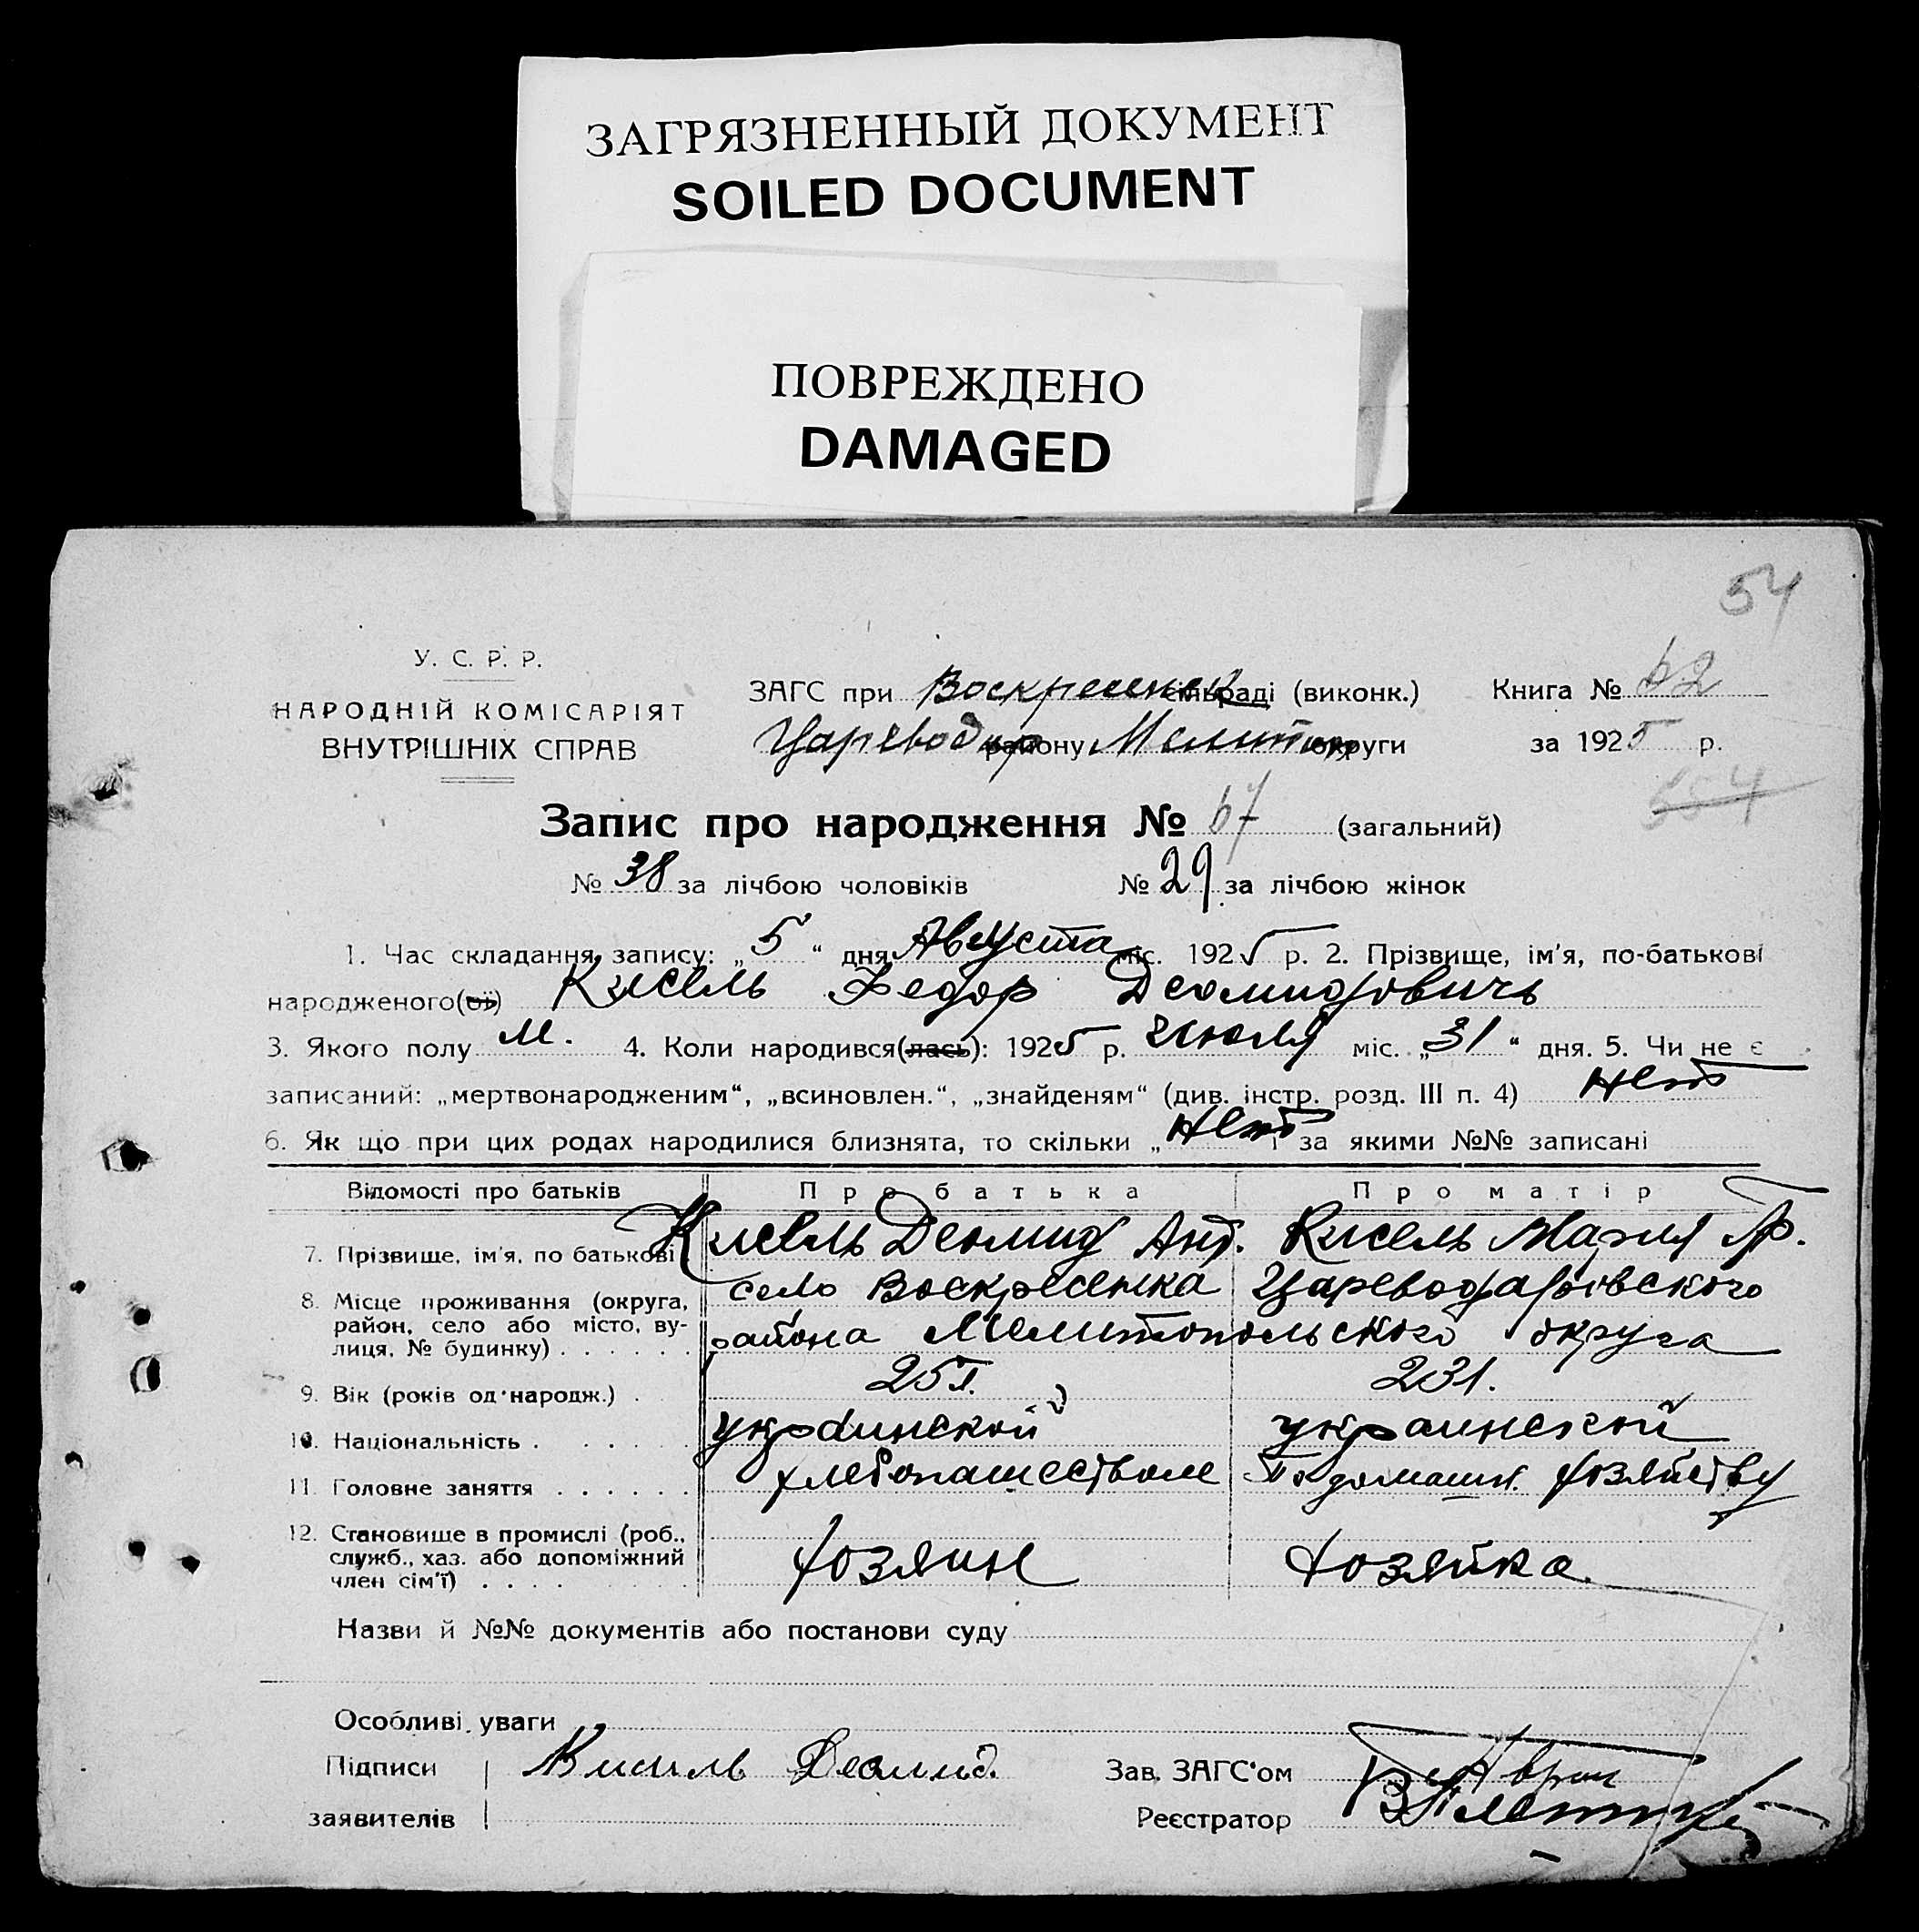 ЗАГРЯЗНЕННЫЙ ДОКУМЕНТ
SOILED DOCUMENT
ПОВРЕЖДЕНО
DAMAGED
54
У. С. Р. Р.
НАРОДНІЙ КОМІСАРІЯТ
ВНУТРІШНІХ СПРАВ
ЗАГС при Воскресенск сільраді (виконк.) Книга № 62
Цареводар району Мелитоп округи за 1925 р.
Запис про народження № 67 (загальний)
№ 38 за лічбою чоловіків № 29 за лічбою жінок
1. Час складання запису: „5“ дня Августа міс. 1925 р. 2. Прізвище, ім'я, по-батькові
народженого(ої) Кисель Федор Деомидовичь
3. Якого полу м. 4. Коли народився(лась): 1925 р. Июля міс. „31“ дня. 5. Чи не є
записаний: „мертвонародженим“, „всиновлен.“, „знайденям“ (див. інстр. розд. III п. 4) Нет
6. Як що при цих родах народилися близнята, то скільки „Нет за якими №№ записані
Відомості про батьків Про батька Про матір
7. Прізвище, ім'я, по батькові Кисель Деомид Ант. Кисель Мария Гр.
8. Місце проживання (округа, район, село або місто, вулиця, № будинку) село Воскресенка Цареводаровского
района Мелитопольского округа
9. Вік (років од народж.) 25 л. 23 л.
10. Національність украинской украинской
11. Головне заняття хлебопашеством По домашн. хозяйству
12. Становище в промислі (роб., служб., хаз. або допоміжний член сім'ї) хозяин хозяйка
Назви й №№ документів або постанови суду
Особливі уваги
Підписи Кисиль Деомид. Зав. ЗАГС'ом
заявителів Реєстратор